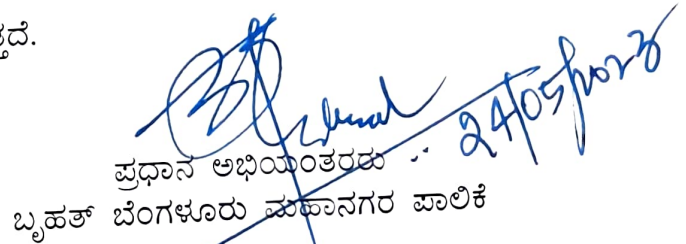 ತ್ತದೆ.
24/05/2023
ಪ್ರಧಾನ ಅಭಿಯಂತರರು
ಬೃಹತ್ ಬೆಂಗಳೂರು ಮಹಾನಗರ ಪಾಲಿಕೆ